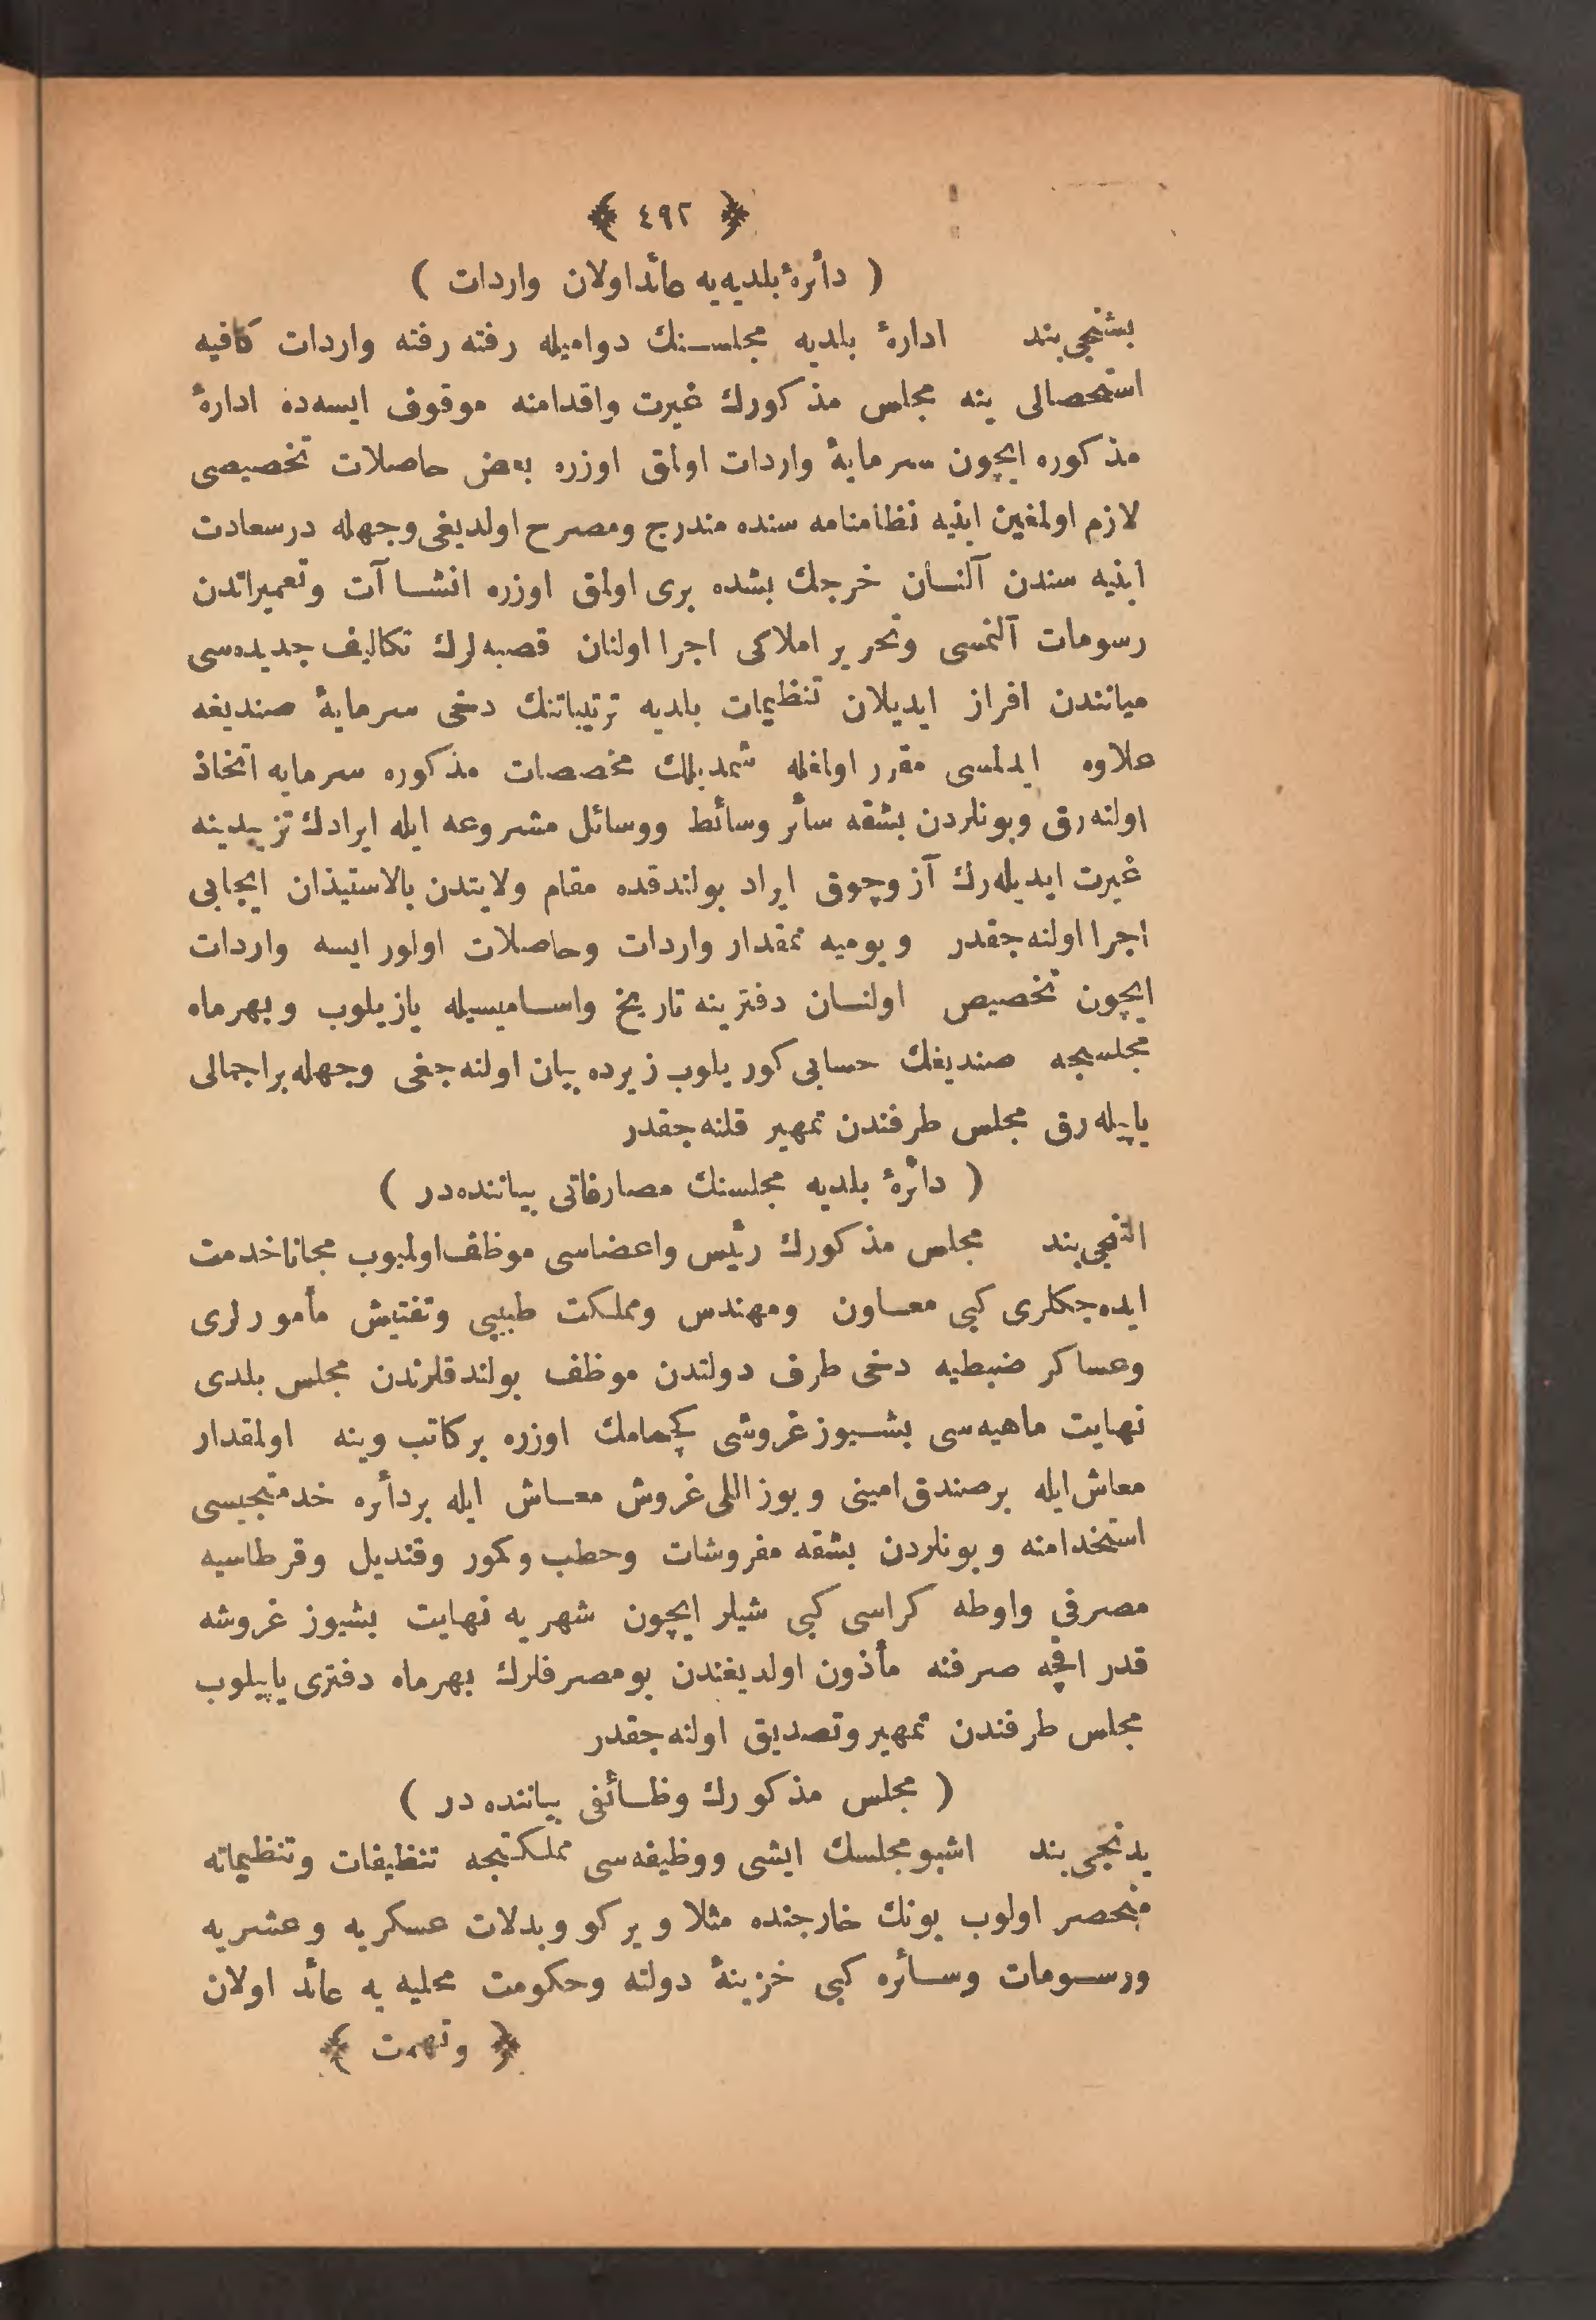 ﴿ ٤٩٢ ﴾
( دائرۀ بلدیه‌یه عائد اولان واردات )
بشنجی بند ادارۀ بلدیه مجلسنك دوامیله رفته رفته واردات كافیه
استحصالی ینه مجلس مذكورك غیرت واقدامنه موقوف ایسه‌ده ادارۀ
مذكوره ایچون سرمایۀ واردات اولمق اوزره بعض حاصلات تخصیصی
لازم اولمغین ابنیه نظامنامه سنده مندرج ومصرح اولدیغی وجهله درسعادت
ابنیه سندن آلنان خرجك بشده بری اولمق اوزره انشاآت وتعمیراتدن
رسومات آلنمسی وتحریر املاكی اجرا اولنان قصبه‌لرك تكالیف جدیده‌سی
میانندن افراز ایدیلان تنظیمات بلدیه ترتیباتنك دخی سرمایۀ صندیغه
علاوه ایدلمسی مقرر اولمغله شمدیلك مخصصات مذكوره سرمایه اتخاذ
اولنه‌رق وبونلردن بشقه سائر وسائط ووسائل مشروعه ایله ایرادك تزییدینه
غیرت ایدیله‌رك آز وچوق ایراد بولندقده مقام ولایتدن بالاستیذان ایجابی
اجرا اولنه‌جقدر ویومیه نمقدار واردات وحاصلات اولور ایسه واردات
ایچون تخصیص اولنان دفترینه تاریخ واسامیسیله یازیلوب وبهرماه
مجلسجه صندیغك حسابی كوریلوب زیرده بیان اولنه‌جغی وجهله براجمالی
یاپیله‌رق مجلس طرفندن تمهیر قلنه‌جقدر
( دائرۀ بلدیه مجلسنك مصارفاتی بیاننده‌در )
التنجی بند مجلس مذكورك رئیس واعضاسی موظف اولمیوب مجانا خدمت
ایده‌جكلری كبی معاون ومهندس ومملكت طبیبی وتفتیش مأمورلری
وعساكر ضبطیه دخی طرف دولتدن موظف بولندقلرندن مجلس بلدی
نهایت ماهیه‌سی بشیوز غروشی كچمامك اوزره بر كاتب وینه اولمقدار
معاش ایله بر صندق امینی ویوز اللی غروش معاش ایله بر دائره خدمتجیسی
استخدامنه وبونلردن بشقه مفروشات وحطب وكمور وقندیل وقرطاسیه
مصرفی واوطه كراسی كبی شیلر ایچون شهریه نهایت بشیوز غروشه
قدر اقچه صرفنه مأذون اولدیغندن بو مصرفلرك بهرماه دفتری یاپیلوب
مجلس طرفندن تمهیر وتصدیق اولنه‌جقدر
( مجلس مذكورك وظائفی بیاننده‌در )
یدنجی بند اشبو مجلسك ایشی ووظیفه‌سی مملكتجه تنظیفات وتنظیماته
منحصر اولوب بونك خارجنده مثلا ویركو وبدلات عسكریه وعشریه
ورسومات وسائره كبی خزینۀ دولته وحكومت محلیه یه عائد اولان
﴿ وتهمت ﴾